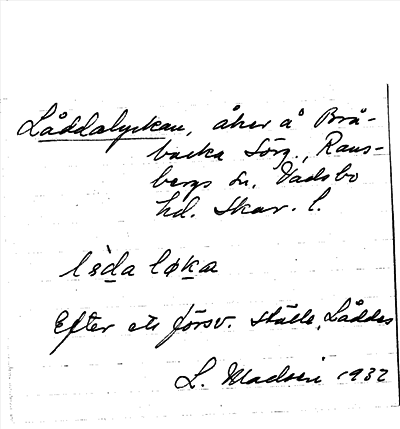 Låddalyckan, åker å Brå-
backa Sörg., Rans-
bergs sn, Vadsbo
hd. Skar. l.
Efter ett försv. ställe, Låddas
L. Madsén 1932